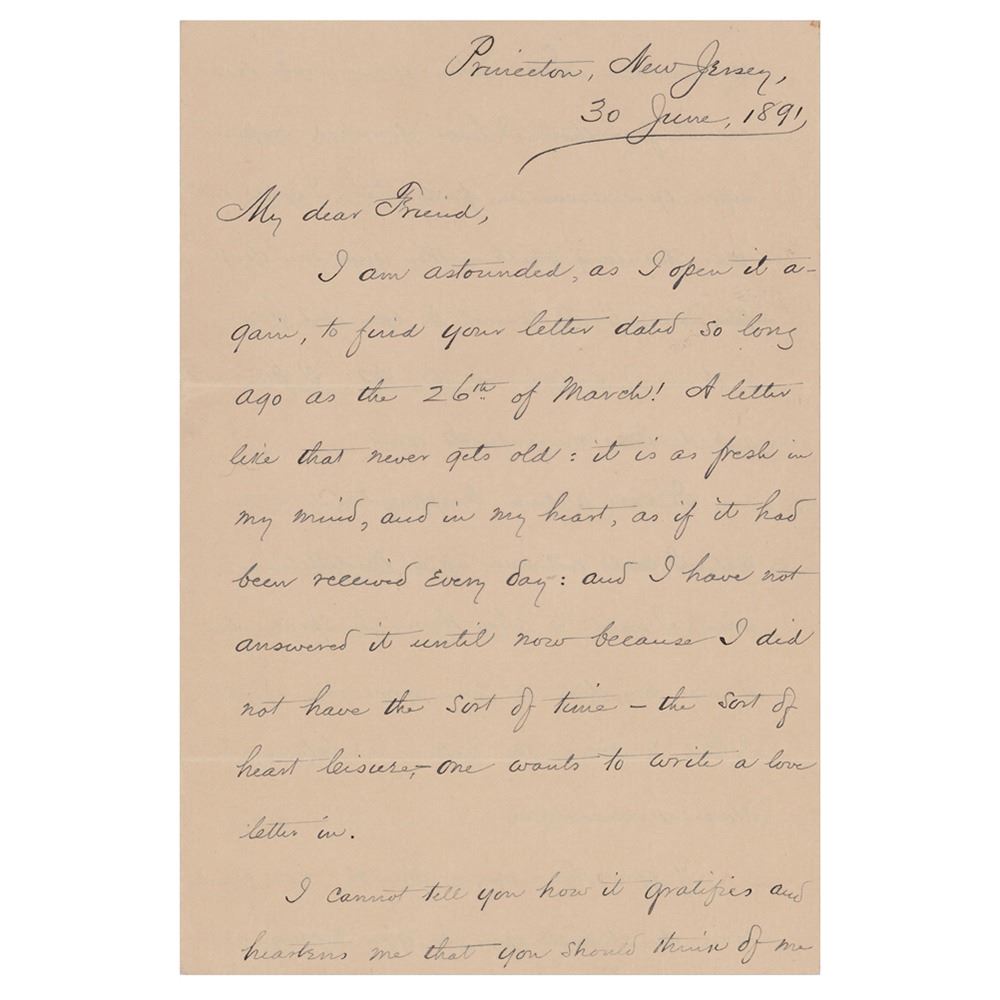 Princeton, New Jersey,
30 June, 1891,
My dear Friend,
I am astounded, as I open it a-
gain, to find your letter dated so long
ago as the 26th. of March! A letter
like that never gets old: it is as fresh in
my mind, and in my heart, as if it had
been received every day: and I have not
answered it until now because I did
not have the sort of time — the sort of
heart leisure,— one wants to write a love
letter in.
I cannot tell you how it gratifies and
heartens me that you should think of me